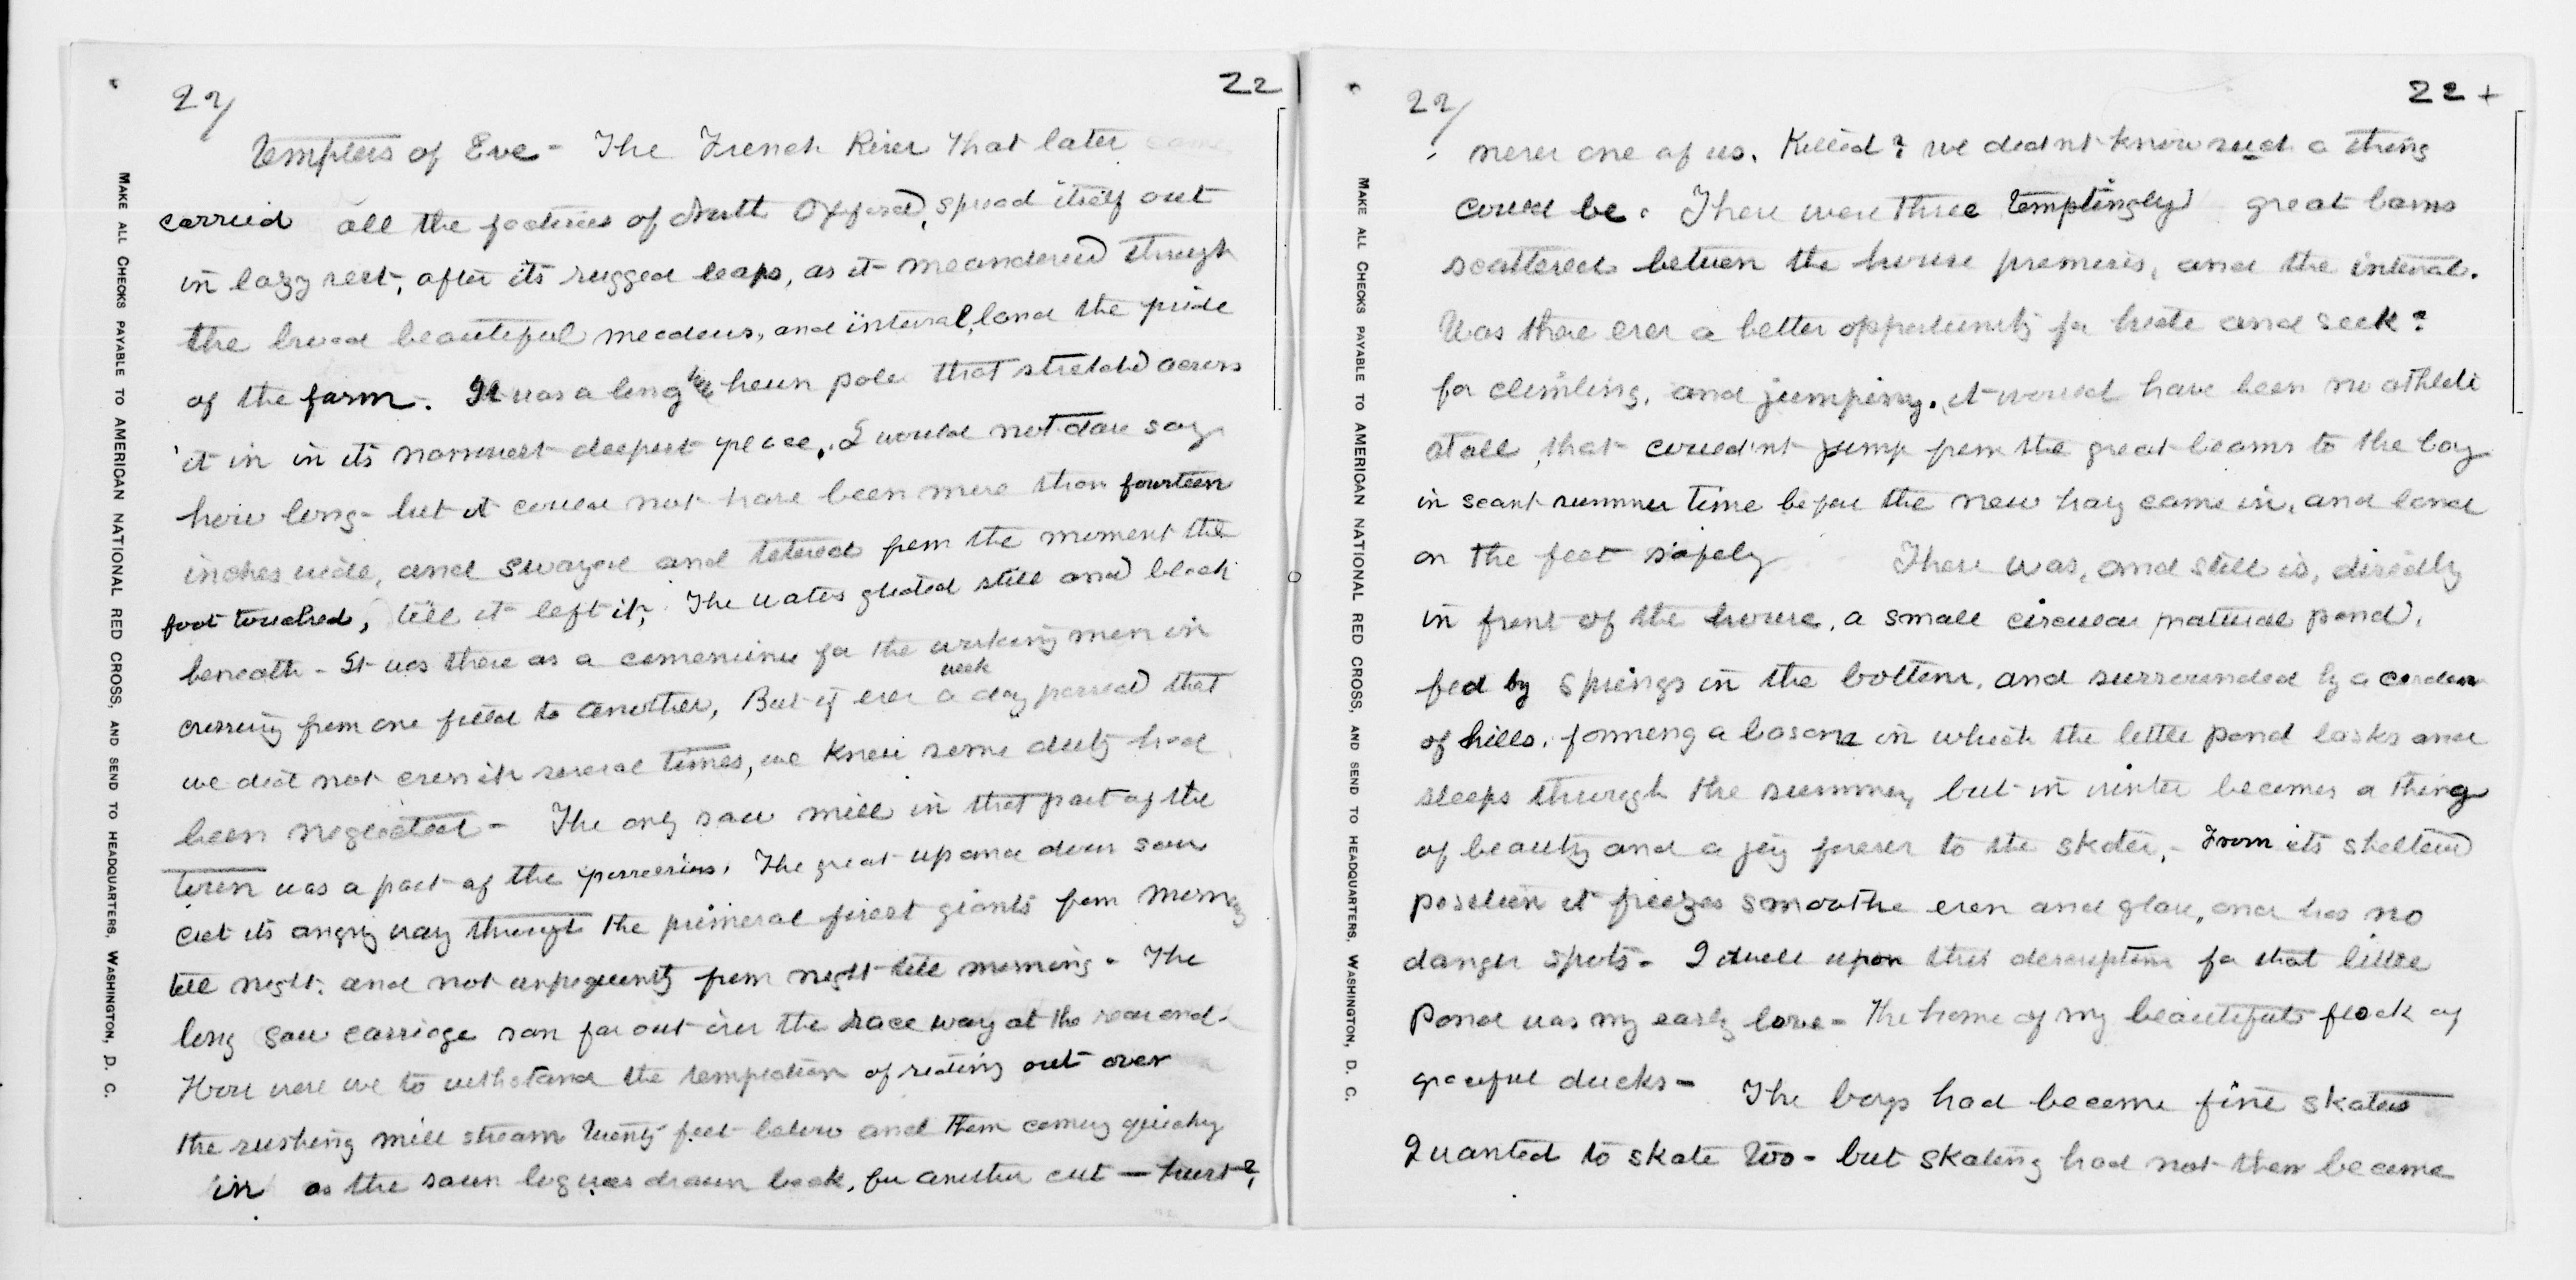 22/
22
Tempters of Eve - The French River that later came
carried all the factories of North Oxford, spread itself out
in lazy rest, after its rugged leaps, as it meandered through
the broad beautiful meadows, and interval land the pride
of the farm. It was a long hewn pole that stretched across
it in in its narrowest deepest place. I would not dare say
how long - but it could not have been more than fourteen
inches wide, and swayed and teetered from the moment the
foot touched, till it left it, The water glided still and black
beneath - It was there as a convenience for the working men in
crossing from one field to another, But if ever a day passed that
week
we did not cross it several times, we knew some duty had
been neglected - The only saw mill in that part of the
town was a part of the possessions. The great up and down saw
cut its angry way through the primeval forest giants from morning
till night. and not unfrequently from night till morning. The
long saw carriage ran far out over the race way at the rear end.
How were we to withstand the temptation of riding out over
the rushing mill stream twenty feet below and then coming quickly
in as the sawn log was drawn back, for another cut - hurt?
MAKE ALL CHECKS PAYABLE TO AMERICAN NATIONAL RED CROSS, AND SEND TO HEADQUARTERS, WASHINGTON, D. C.
22/
22+
never one of us. Killed? we didnt know such a thing
could be. There were three temptingly great barns
scattered between the house premises, and the interval.
Was there ever a better opportunity for hide and seek?
for climbing, and jumping. it would have been no athlete
at all, that couldn't jump from the great beams to the bay
in scant summer time before the new hay came in, and land
on the feet safely There was, and still is, directly
in front of the house, a small circular natural pond,
fed by springs in the bottom, and surrounded by a cordon
of hills, forming a basom in which the little pond basks and
sleeps through the summer, but in winter becomes a thing
of beauty and a joy forever to the skater, - From its sheltered
position it freezes smoothe even and glare, and has no
danger spots - I dwell upon this description for that little
pond was my early love - the home of my beautiful flock of
graceful ducks - The boys had become fine skaters
I wanted to skate too - but skating had not then become
MAKE ALL CHECKS PAYABLE TO AMERICAN NATIONAL RED CROSS, AND SEND TO HEADQUARTERS, WASHINGTON, D. C.